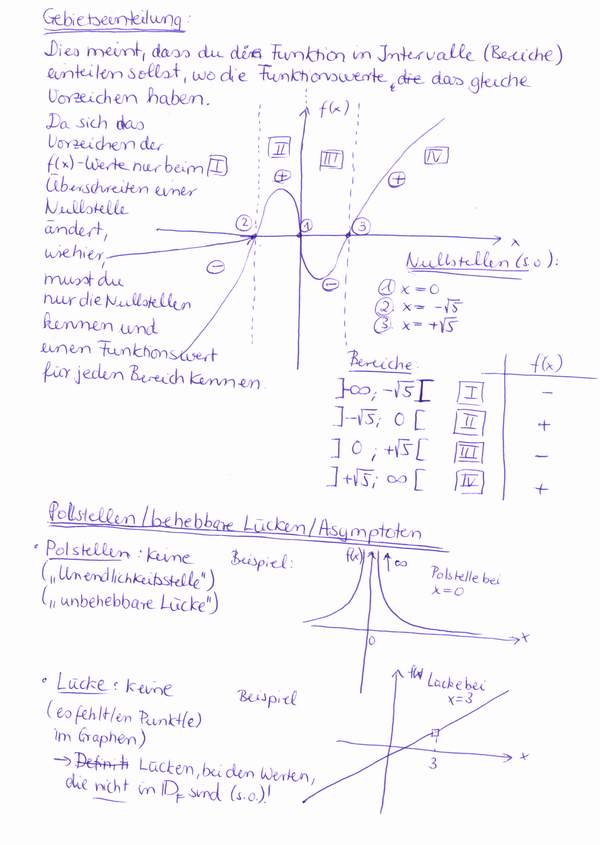 Gebietseinteilung:
Dies meint, dass du die Funktion in Intervalle (Bereiche)
einteilen sollst, wo die Funktionswerte, die das gleiche
Vorzeichen haben.
Da sich das
Vorzeichen der
f(x)-Werte nur beim
Überschreiten einer
Nullstelle
ändert,
wie hier,
musst du
nur die Nullstellen
kennen und
einen Funktionswert
für jeden Bereich kennen.
f(x)
I
II
III
IV
+
+
2
1
3
x
−
−
Nullstellen (s.o.):
1 x = 0
2. x = -√5
3. x = +√5
Bereiche: f(x)
]-∞; -√5[ I −
]-√5; 0 [ II +
] 0 ; +√5[ III −
]+√5; ∞ [ IV +
Polstellen/behebbare Lücken/Asymptoten
• Polstellen: keine
("Unendlichkeitsstelle")
("unbehebbare Lücke")
Beispiel:
f(x)
∞
Polstelle bei
x=0
0
x
• Lücke: keine
(es fehlt/en Punkt(e)
im Graphen)
→ Lücken, bei den Werten,
die nicht in D_F sind (s.o.)!
Beispiel
f(x)
Lücke bei
x=3
3
x